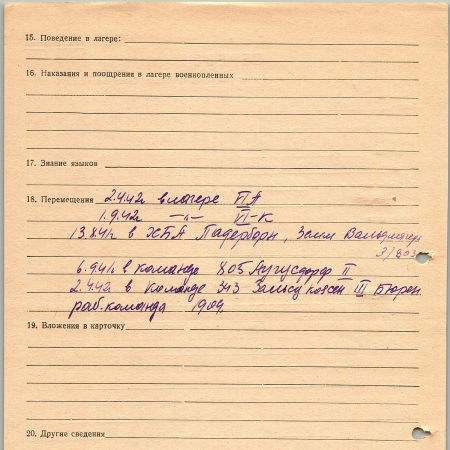 15. Поведение в лагере:
16. Наказания и поощрения в лагере военнопленных
17. Знание языков
18. Перемещения 2.4.42г в лагере VI А
1.9.42г —„— VI-К
в ХБА Падерборн, Земл
6.9.41г в команде 805 Аугусдорф II
2.4.42г в команде 343 III Бюрен
раб. команда 1909.
19. Вложения в карточку
20. Другие сведения